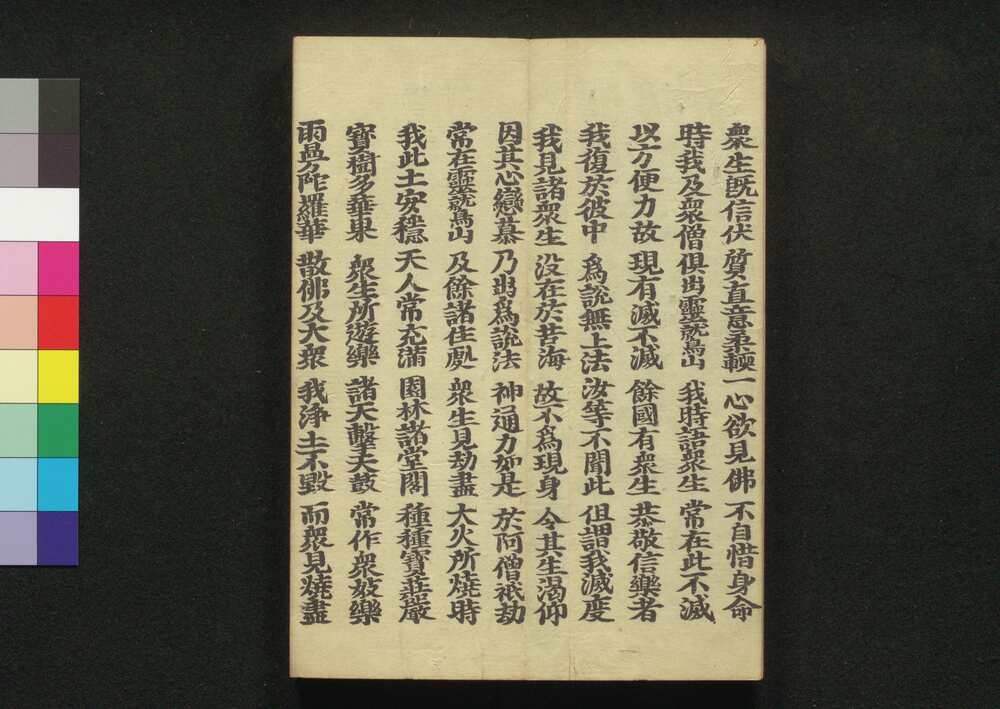 衆生既信伏 質直意柔輭 一心欲見佛 不自惜身命
時我及衆僧 俱出靈鷲山 我時語衆生 常在此不滅
以方便力故 現有滅不滅 餘國有衆生 恭敬信樂者
我復於彼中 爲説無上法 汝等不聞此 但謂我滅度
我見諸衆生 没在於苦海 故不爲現身 令其生渴仰
因其心戀慕 乃出爲説法 神通力如是 於阿僧祇劫
常在靈鷲山 及餘諸住處 衆生見劫盡 大火所燒時
我此土安穩 天人常充滿 園林諸堂閣 種種寶莊嚴
寶樹多華果 衆生所遊樂 諸天擊天鼓 常作衆妓樂
雨曼陀羅華 散佛及大衆 我淨土不毀 而衆見燒盡